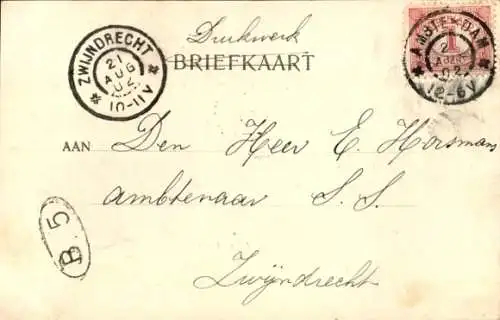 Drukwerk
BRIEFKAART
ZWIJNDRECHT
21
AUG
02
10-11V
AMSTERDAM
1
AUG
02
12-6V
AAN Den Heer E. Horsmans
ambtenaar S. S.
Zwijndrecht
B. 5